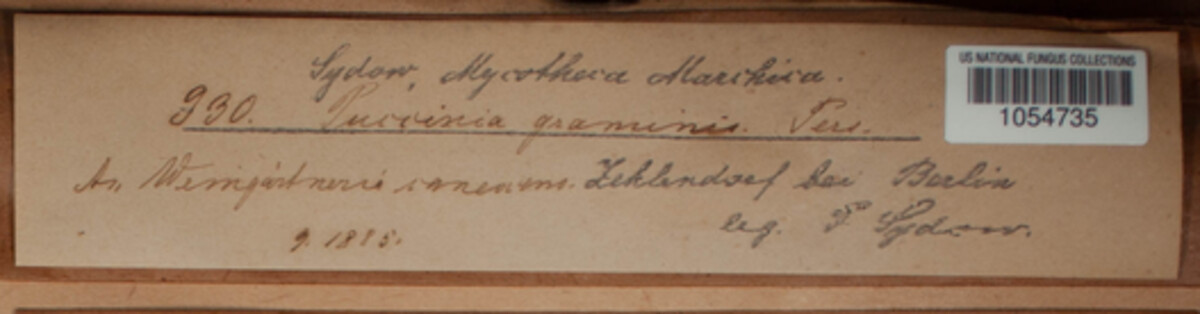 Sydow, Mycotheca Marchica.
930. Puccinia graminis. Pers.
An Weingärtneria canescens. Zehlendorf bei Berlin
9. 1885.
leg. P Sydow.
US NATIONAL FUNGUS COLLECTIONS
1054735